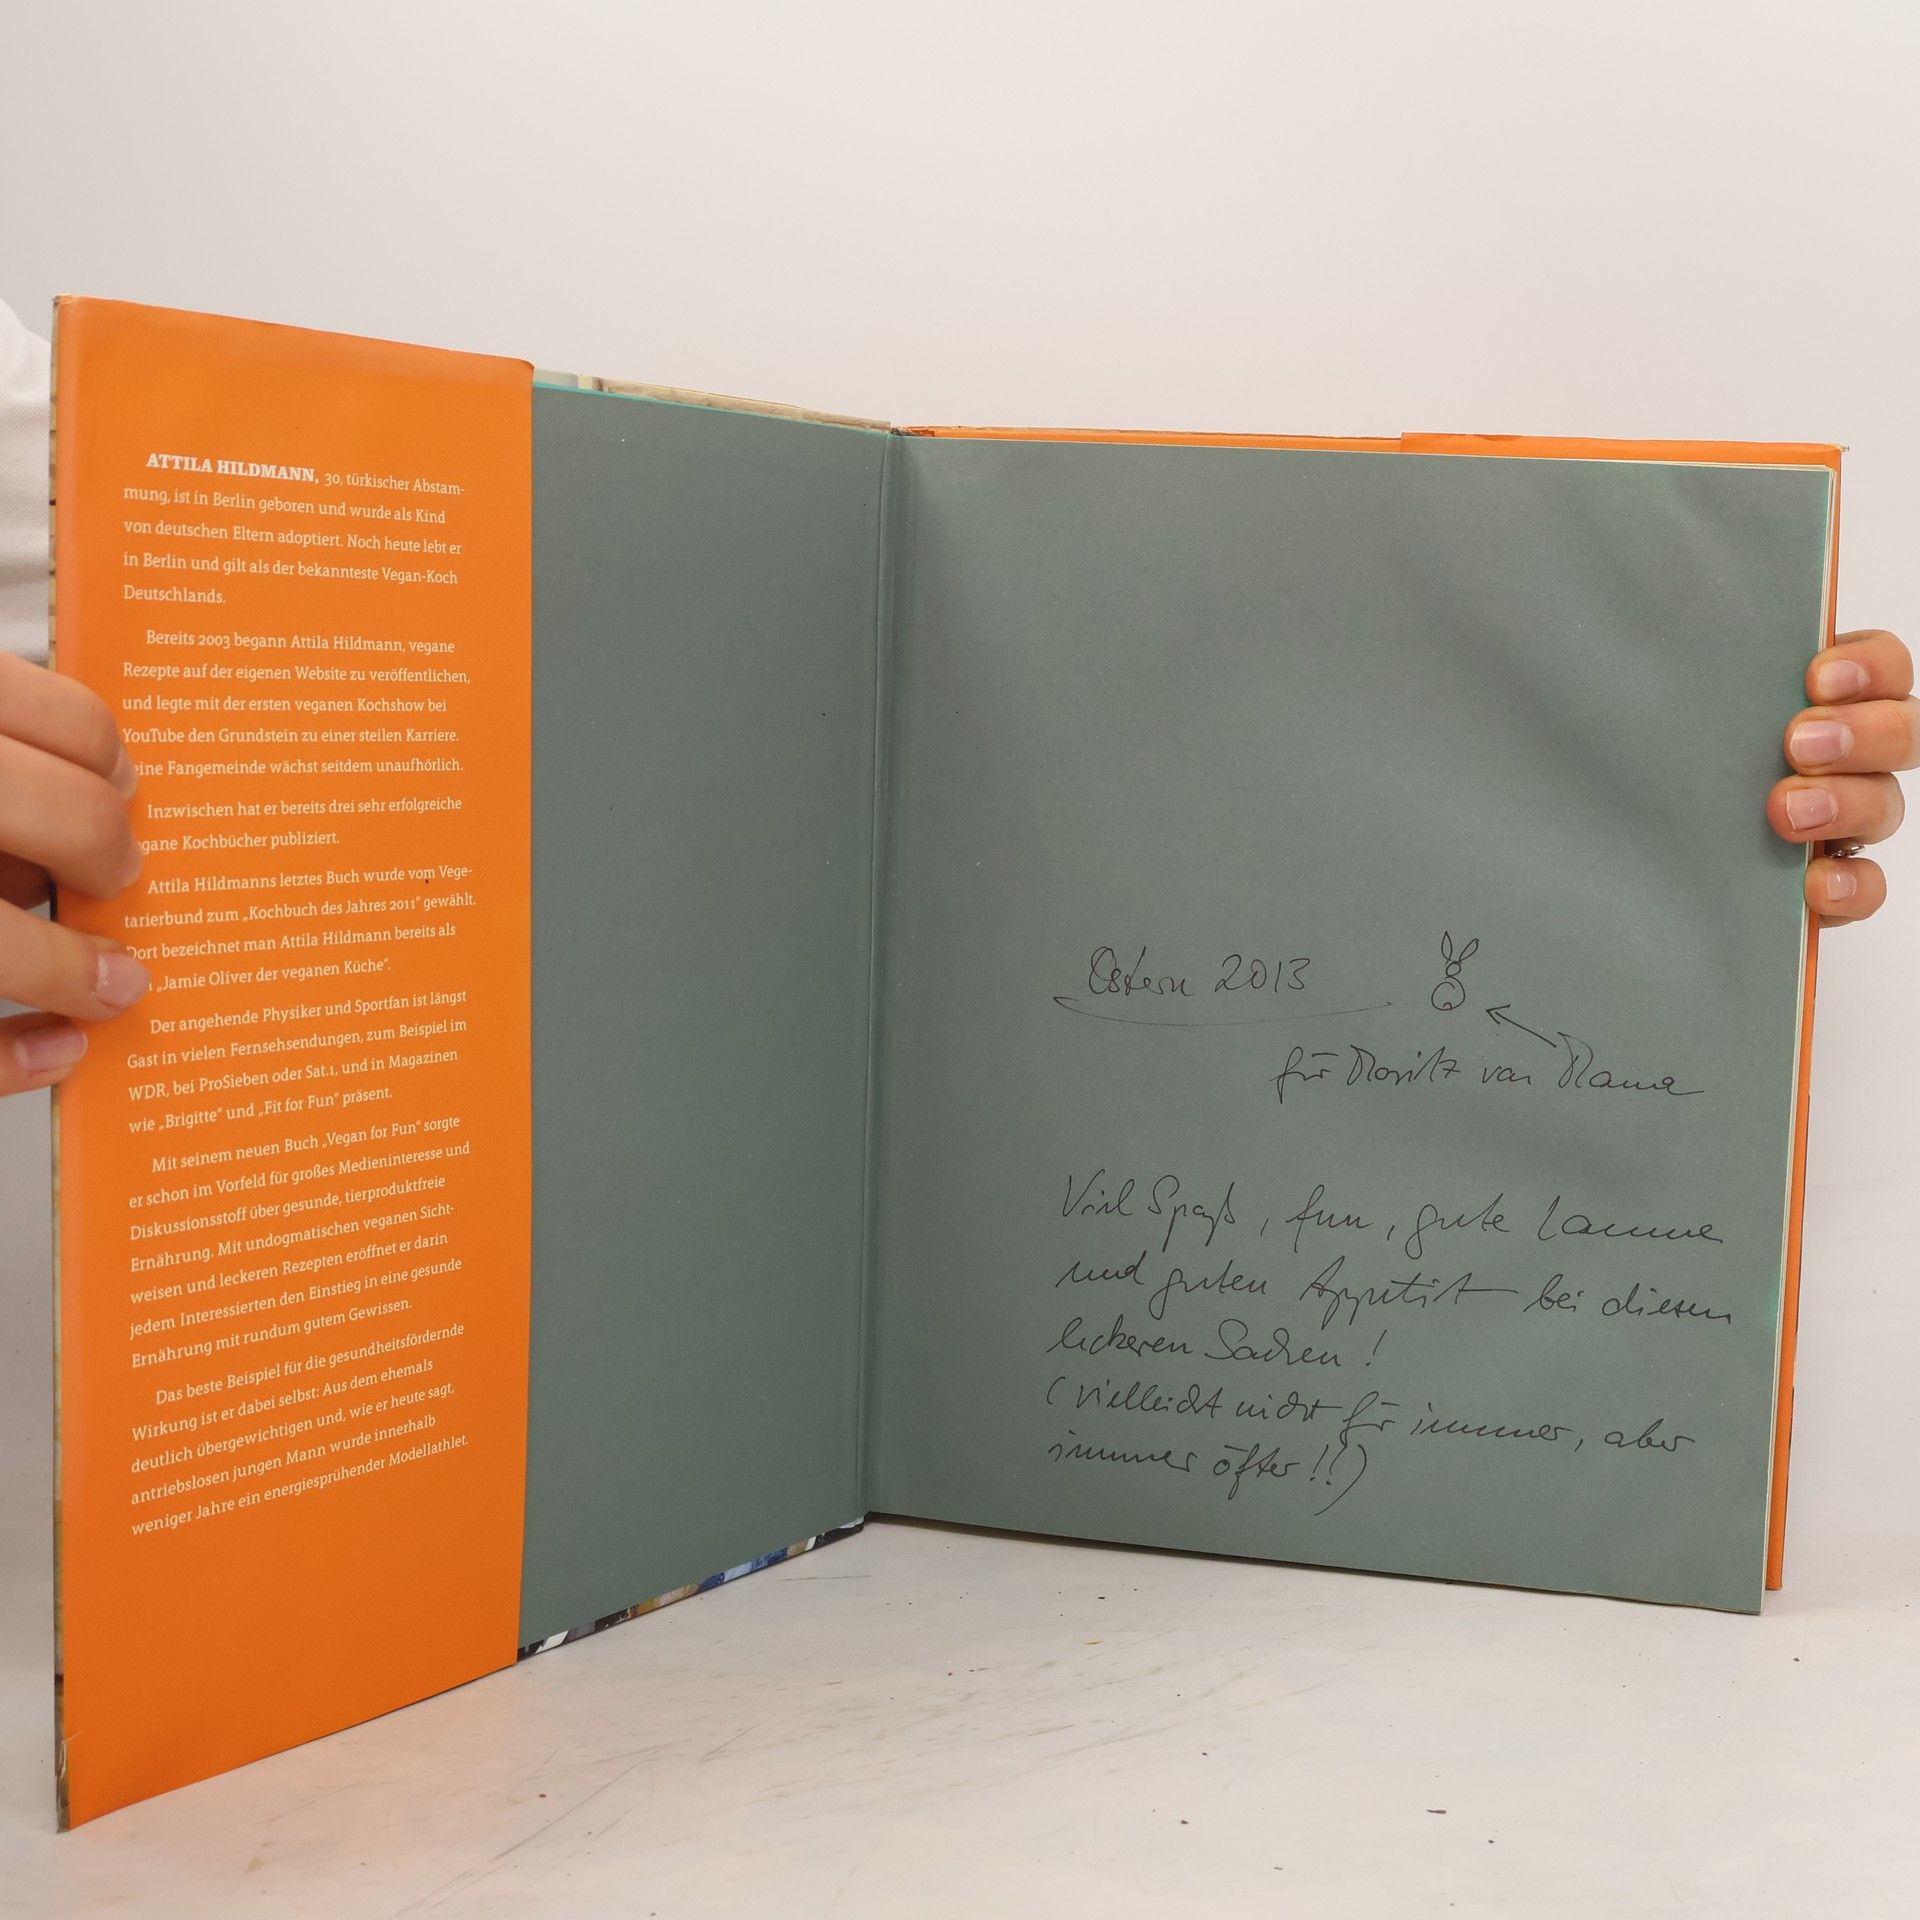 ATTILA HILDMANN, 30, türkischer Abstam-
mung, ist in Berlin geboren und wurde als Kind
von deutschen Eltern adoptiert. Noch heute lebt er
in Berlin und gilt als der bekannteste Vegan-Koch
Deutschlands.
Bereits 2003 begann Attila Hildmann, vegane
Rezepte auf der eigenen Website zu veröffentlichen,
und legte mit der ersten veganen Kochshow bei
YouTube den Grundstein zu einer steilen Karriere.
eine Fangemeinde wächst seitdem unaufhörlich.
Inzwischen hat er bereits drei sehr erfolgreiche
gane Kochbücher publiziert.
Attila Hildmanns letztes Buch wurde vom Vege-
tarierbund zum „Kochbuch des Jahres 2011“ gewählt.
Dort bezeichnet man Attila Hildmann bereits als
„Jamie Oliver der veganen Küche“.
Der angehende Physiker und Sportfan ist längst
Gast in vielen Fernsehsendungen, zum Beispiel im
WDR, bei ProSieben oder Sat.1, und in Magazinen
wie „Brigitte“ und „Fit for Fun“ präsent.
Mit seinem neuen Buch „Vegan for Fun“ sorgte
er schon im Vorfeld für großes Medieninteresse und
Diskussionsstoff über gesunde, tierproduktfreie
Ernährung. Mit undogmatischen veganen Sicht-
weisen und leckeren Rezepten eröffnet er darin
jedem Interessierten den Einstieg in eine gesunde
Ernährung mit rundum gutem Gewissen.
Das beste Beispiel für die gesundheitsfördernde
Wirkung ist er dabei selbst: Aus dem ehemals
deutlich übergewichtigen und, wie er heute sagt,
antriebslosen jungen Mann wurde innerhalb
weniger Jahre ein energiesprühender Modellathlet.
Ostern 2013
für Moritz von Mama
Viel Spaß, fun, gute Laune
und guten Appetit bei diesen
leckeren Sachen!
(vielleicht nicht für immer, aber
immer öfter!!)